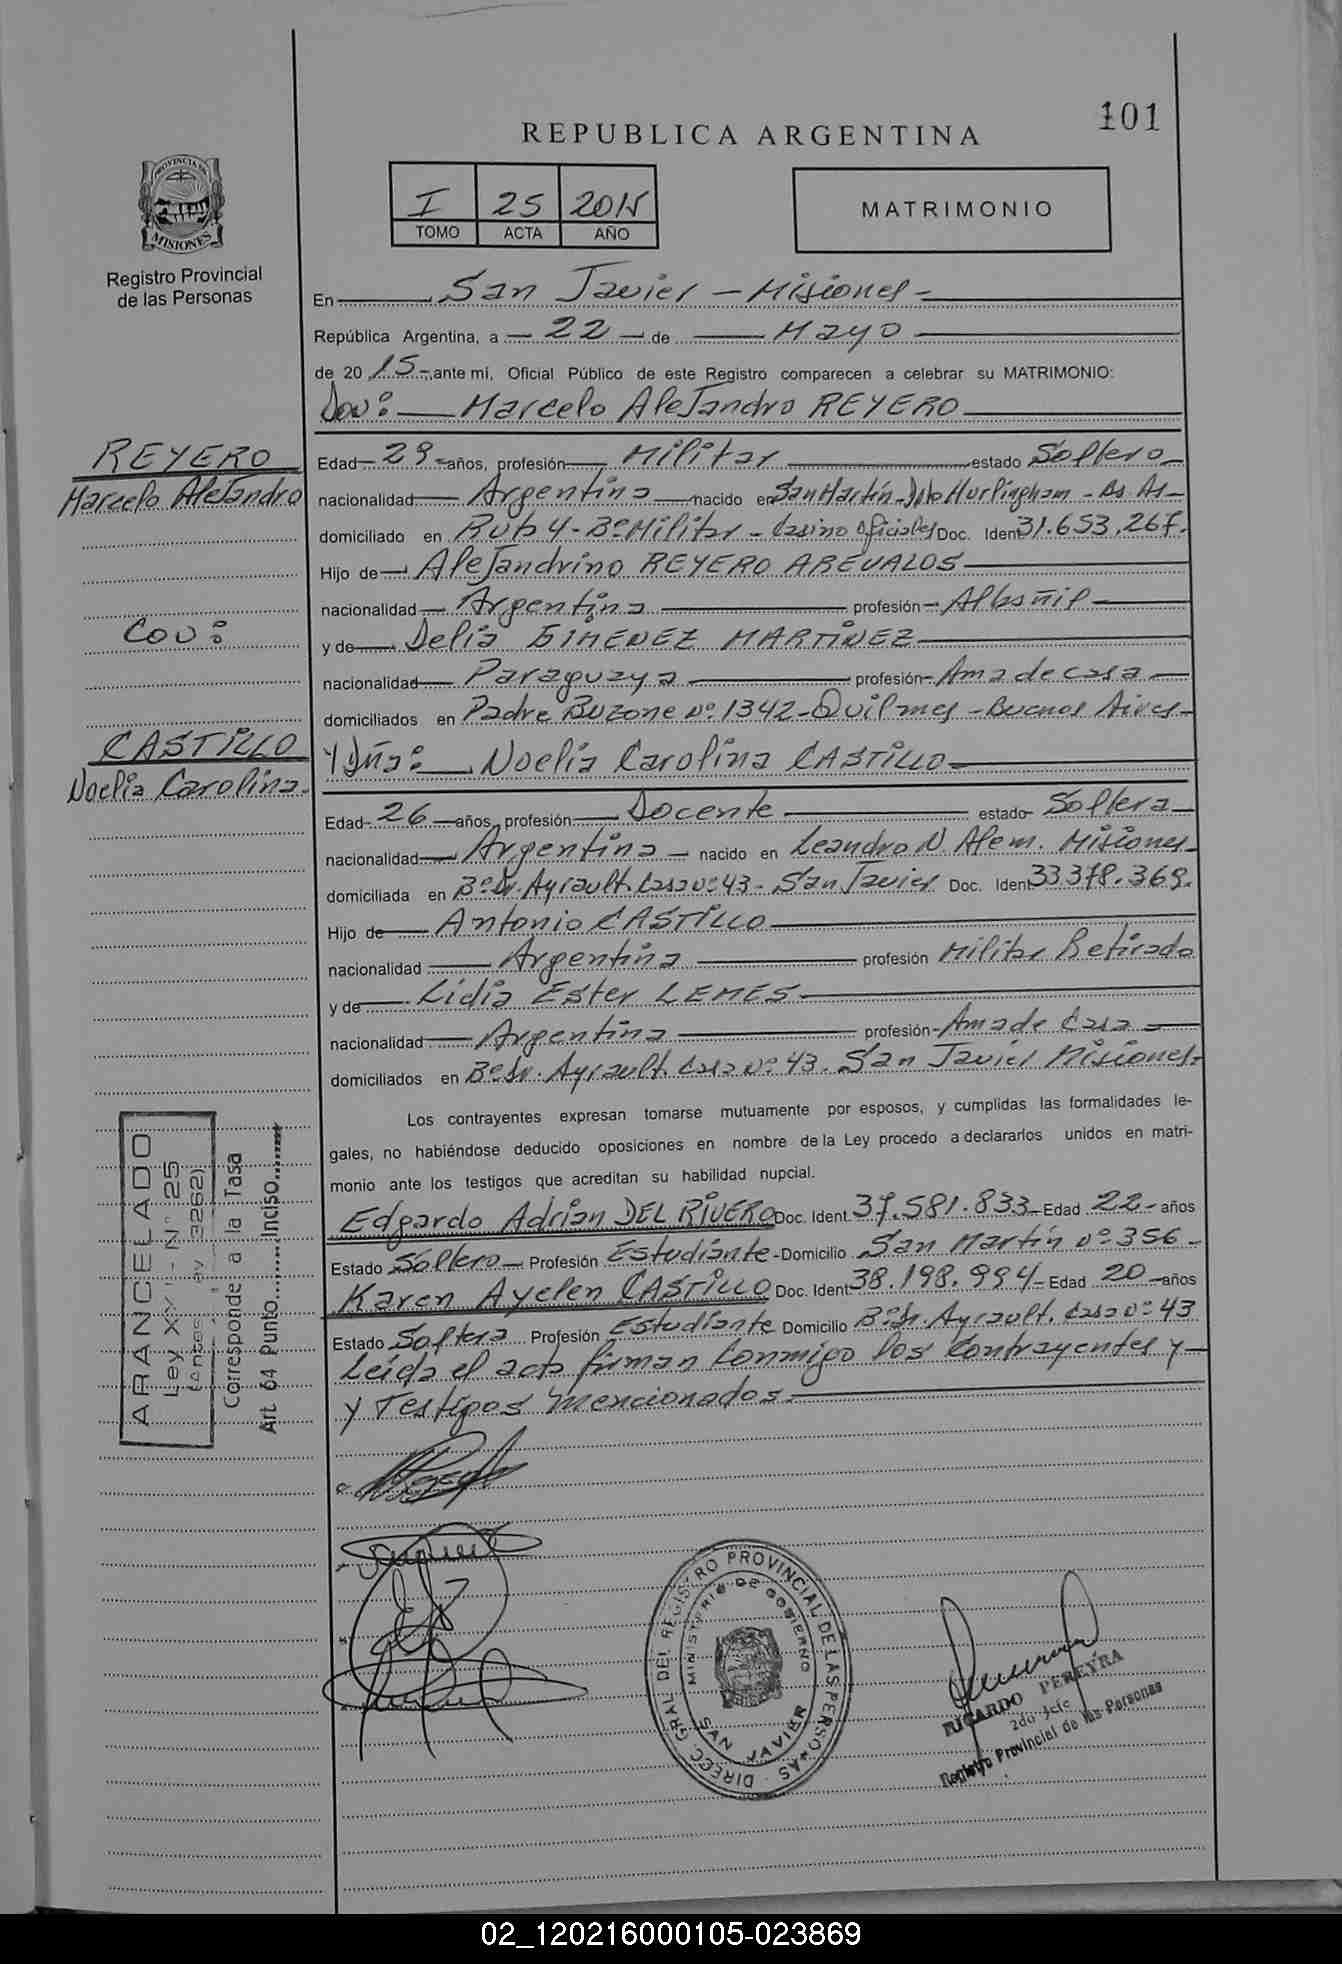 101
REPUBLICA ARGENTINA
PROVINCIA DE
MISIONES
Registro Provincial
de las Personas
I 25 2015
TOMO ACTA AÑO
MATRIMONIO
En San Javier - Misiones -
República Argentina, a - 22 - de Mayo
de 2015-, ante mi, Oficial Público de este Registro comparecen a celebrar su MATRIMONIO:
Don: Marcelo Alejandro REYERO
REYERO
Marcelo Alejandro
Con:
CASTILLO
Noelia Carolina.
Edad - 29 - años, profesión Militar estado Soltero
nacionalidad Argentina nacido en San Martín - Hurlingham - Bs As -
domiciliado en Ruta 4 - Bº Militar - Casino Oficiales Doc. Ident 31.653.267.
Hijo de Alejandrino REYERO AREVALOS
nacionalidad Argentina profesión - Albañil
y de Delia GIMENEZ MARTINEZ
nacionalidad Paraguaya profesión - Ama de casa
domiciliados en Padre Buzone Nº 1342 - Quilmes - Buenos Aires -
Y Dña: Noelia Carolina CASTILLO
Edad - 26 - años, profesión Docente estado - Soltera
nacionalidad Argentina - nacido en Leandro N. Alem. Misiones
domiciliada en Bº Dr. Ayrault. Casa Nº 43 - San Javier Doc. Ident 33.378.369.
Hijo de Antonio CASTILLO
nacionalidad Argentina profesión Militar Retirado
y de Lidia Ester LEMES
nacionalidad Argentina profesión - Ama de Casa
domiciliados en Bº Dr. Ayrault. Casa Nº 43. San Javier Misiones.
Los contrayentes expresan tomarse mutuamente por esposos, y cumplidas las formalidades le-
gales, no habiéndose deducido oposiciones en nombre de la Ley procedo a declararlos unidos en matri-
monio ante los testigos que acreditan su habilidad nupcial.
Edgardo Adrian DEL RIVERO Doc. Ident. 37.581.833 - Edad 22 - años
Estado Soltero - Profesión Estudiante - Domicilio San Martín Nº 356 -
Karen Ayelen CASTILLO Doc. Ident 38.198.994 - Edad 20 - años
Estado Soltera Profesión Estudiante Domicilio Bº Dr. Ayrault. Casa Nº 43
Leída el acta firman conmigo los contrayentes y
y Testigos mencionados.
ARANCELADO
Ley XXII - Nº 25
(antes Ley 3262)
Corresponde a la Tasa
Art. 64 Punto.........Inciso.........
DIRECC. GRAL. DEL REGISTRO PROVINCIAL DE LAS PERSONAS
MINISTERIO DE GOBIERNO
SAN JAVIER
RICARDO PEREYRA
2do Jefe
Registro Provincial de las Personas
02_120216000105-023869